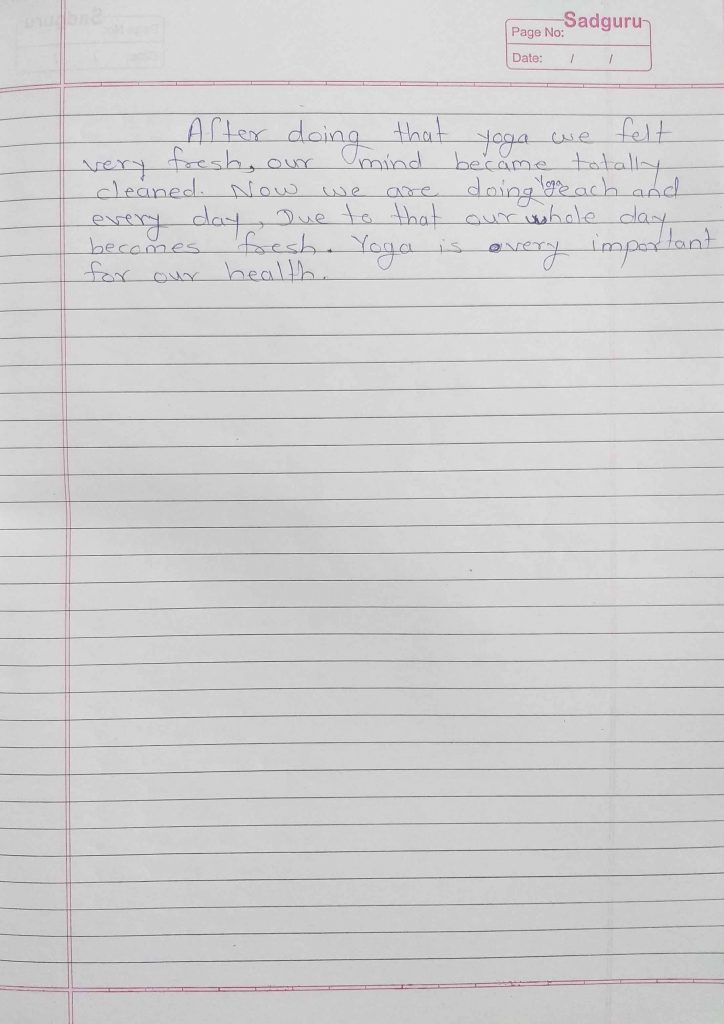 Sadguru
Page No:
Date: / /
After doing that yoga we felt
very fresh, our mind became totally
cleaned. Now we are doing Yoga each and
every day, Due to that our whole day
becomes fresh. Yoga is very important
for our health.